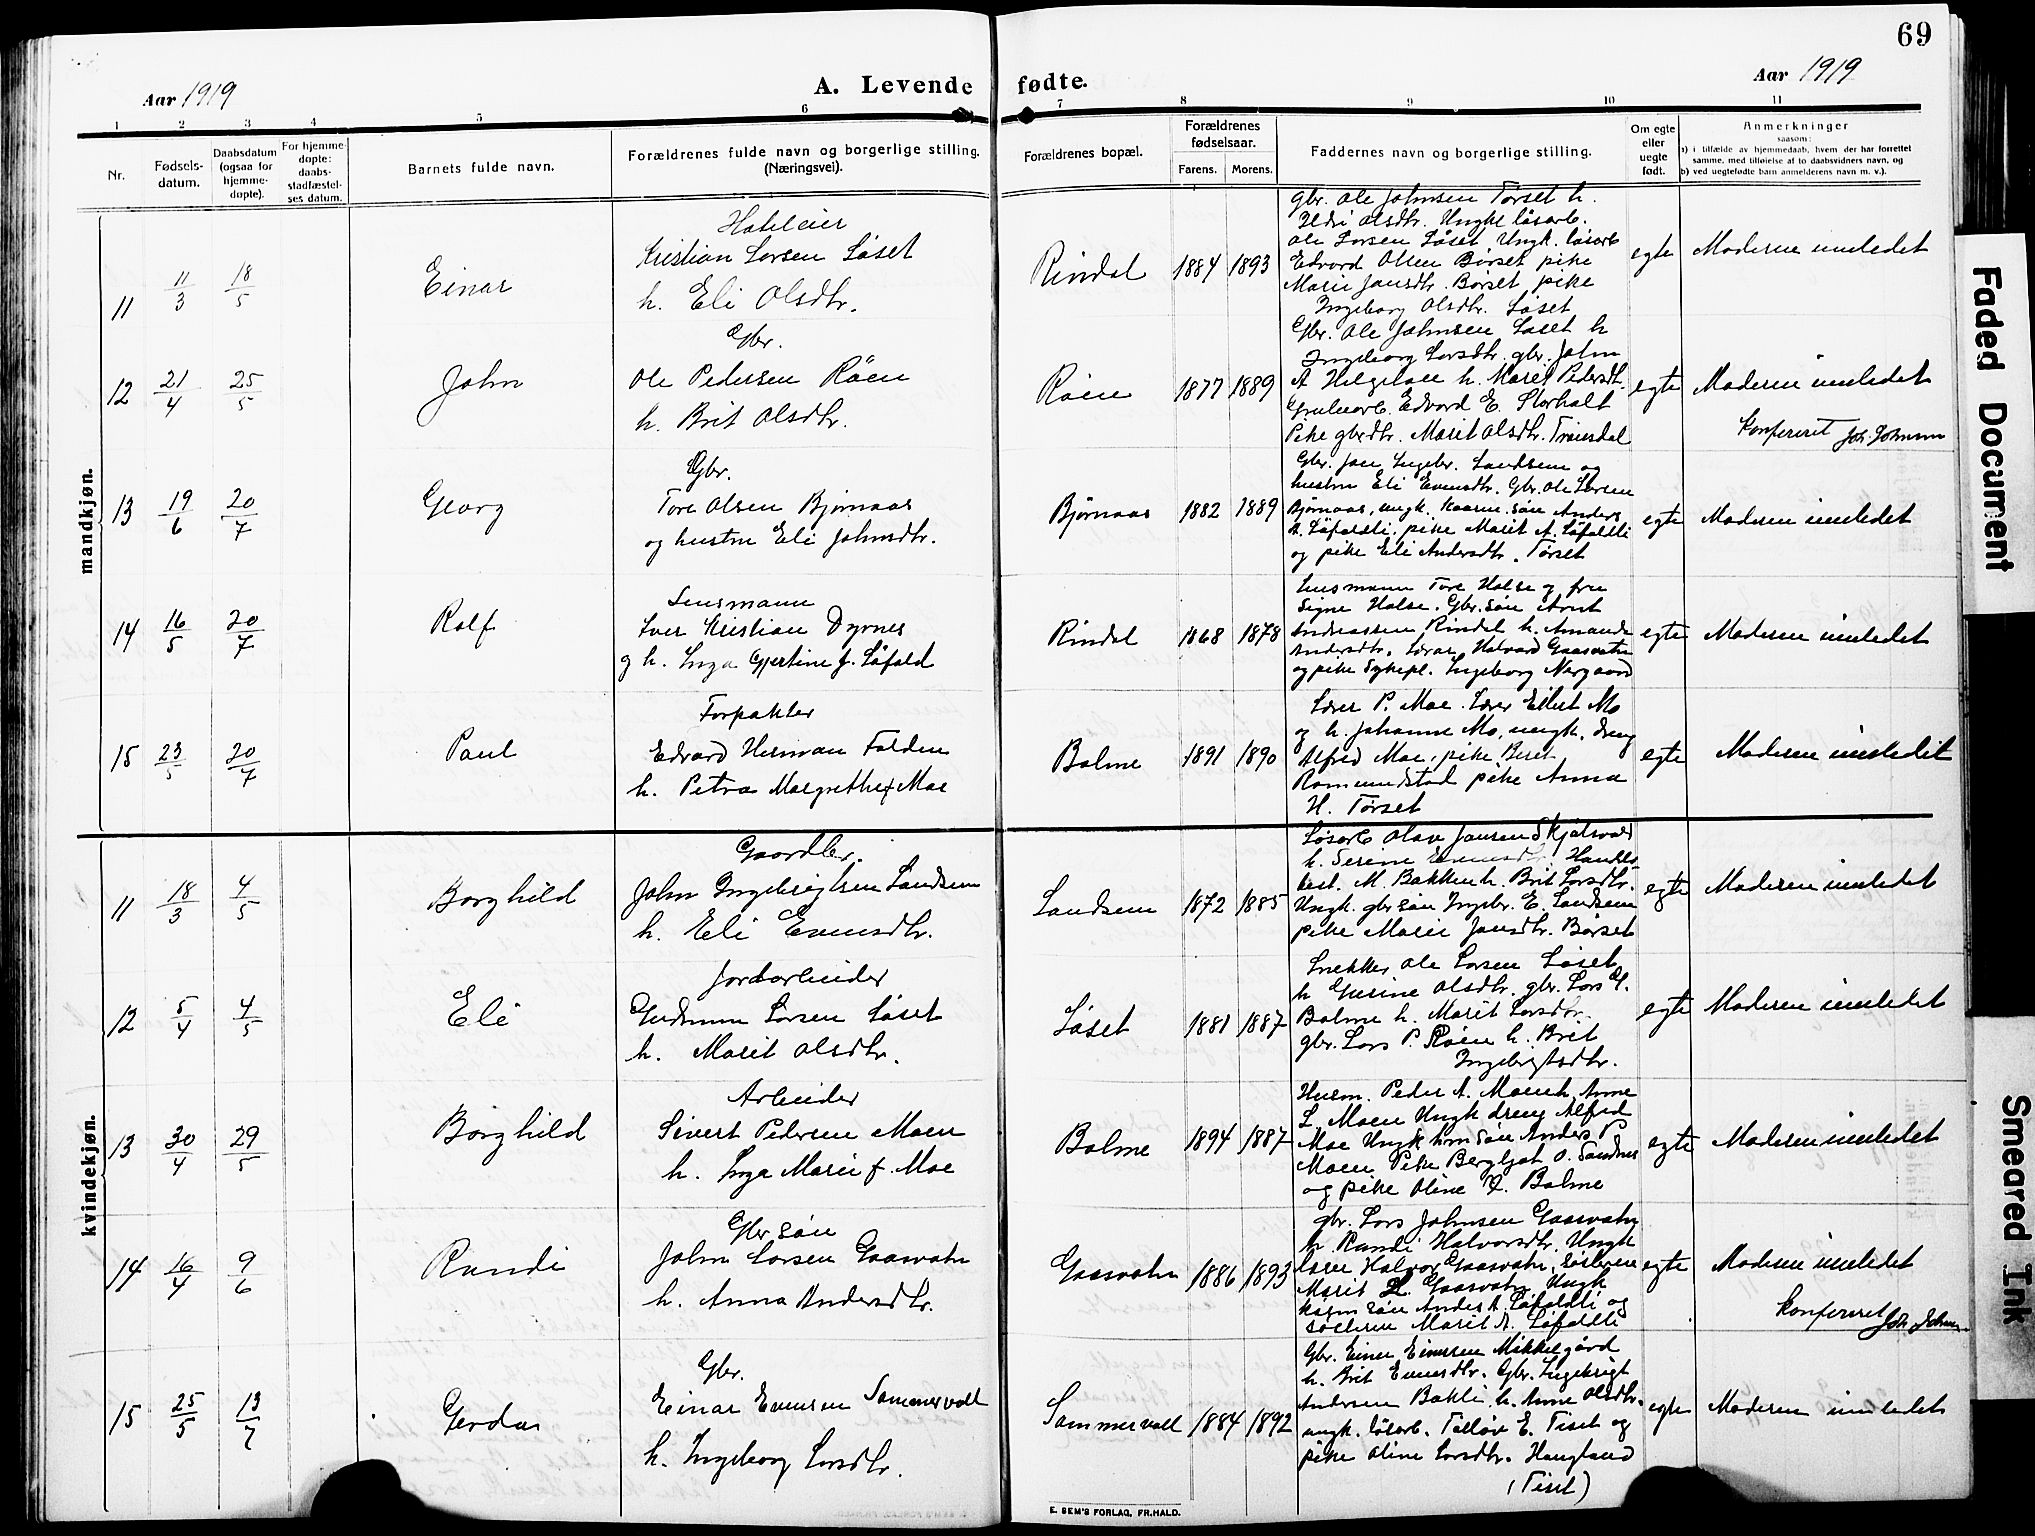 69
Aar 1919
A. Levende fødte.
Aar 1919
1 2 3 4 5 6 7 8 9 10 11
Nr.
Fødsels-
datum.
Daabsdatum
(ogsaa for
hjemme-
døpte).
For hjemme-
døpte:
daabs-
stadfæstel-
ses datum.
Barnets fulde navn.
Forældrenes fulde navn og borgerlige stilling.
(Næringsvei).
Forældrenes bopæl.
Forældrenes
fødselsaar.
Farens. Morens.
Faddernes navn og borgerlige stilling.
Om egte
eller
uegte
født.
Anmerkninger
saasom:
a) i tilfælde av hjemmedaab, hvem der har forrettet
samme, med tilføielse af to daabsvidners navn, og
b) ved uegtefødte barn anmelderens navn m. v.).
mandkjøn.
11 11/3 18/5 Einar
Hoteleier
Kristian Larsen Løset
h. Eli Olsdtr.
Rindal 1884 1893
gbr. Ole Johnsen Tørset h.
Ildri Olsdtr. Ungk. løsarb.
Ole Larsen Løset, Ungk. løsarb
Edvard Olsen Børset pike
Marie Jansdtr. Børset, pike
Ingeborg Olsdtr. Løset
egte Moderen innledet
12 21/4 25/5 John
Gbr.
Ole Pedersen Røen
h. Brit Olsdtr.
Røen 1877 1889
Gbr. Ole Johnsen Løset h
Ingeborg Larsdtr. gbr. John
A Helgetun h. Marit Pedersdt.
Grubearb. Edvard E. Storholt
Pike gbrdtr. Marit Olsdtr. Trøesdal
egte Moderen innledet
Konfereret Joh. Johnsen
13 19/6 20/7 Georg
Gbr.
Tore Olsen Bjørnaas
og hustru Eli Johnsdtr.
Bjørnaas 1882 1889
Gbr. Jon Ingebr. Landsem og
hustru Eli Evensdtr. Gbr. Ole Larsen
Bjørnaas, ungk. Kaarm. søn Anders
A. Løfaldli, pike Marit A. Løfaldli
og pike Eli Andersdtr. Tørset
egte Moderen innledet
14 16/5 20/7 Rolf
Lensmann
Iver Kristian Dyrnes
og h. Inga Gjertine f. Løfald
Rindal 1868 1878
Lensmann Tore Halse og fru
Signe Halse. Gbr. søn Arnt
Andreassen Rindal h. Amanda
Andersdtr. Lærer Halvard Gaasvatn
og pike Sykepl. Ingeborg Nergaard
egte Moderen innledet
15 23/5 20/7 Paul
Forpakter
Edvard Herman Falden
h. Petra Margrethe f. Moe
Bolme 1891 1890
Lærer P. Moe. Lærer Eilert Mo
og h. Johanne Mo, ungk. dreng
Alfred Moe, pike Beret
Romundstad pike Anna
H. Tørset
egte Moderen innledet
kvindekjøn.
11 18/3 4/5 Borghild
Gaardbr.
John Ingebrigtsen Landsem
h. Eli Evensdtr.
Landsem 1872 1885
Løsarb Olav Jansen Skjølsvold
h. Serine Evensdtr. Handels
best. M. Bakken h. Brit Larsdtr.
Ungk. gbr søn Ingebr. E. Landsem
pike Marie Jansdtr. Børset
egte Moderen innledet
12 5/4 4/5 Eli
Jordarbeider
Gudmun Larsen Løset
h. Marit Olsdtr.
Løset 1881 1887
Snekker Ole Larsen Løset
h Gurine Olsdtr. gbr. Lars G.
Bolme h. Marit Larsdtr.
gbr. Lars P. Røen h. Brit
Ingebrigtsdtr.
egte Moderen innledet
13 30/4 29/5 Borghild
Arbeider
Sivert Pedersen Moen
h. Inga Marie f. Moe
Bolme 1894 1887
Husm. Peder A. Moen h. Anne
L Moen Ungk dreng Alfred
Moe Ungk hmsøn Anders P
Moen Pike Bergljot O. Sandnes
og pike Oline L. Bolme
egte Moderen innledet
14 16/4 9/6 Randi
Gbr søn
John Larsen Gaasvatn
h. Anna Andersdtr.
Gaasvatn 1886 1893
gbr. Lars Johnsen Gaasvatn
h. Randi Halvorsdtr. Ungk
lærer Halvor Gaasvatn,
Marit L. Gaasvatn, Ungk
søn Anders A. Løfaldli og
Marit A. Løfaldli
egte Moderen innledet
Konfereret Joh Johnsen
15 25/5 13/7 Gerda
Gbr.
Einar Evensen Sommervold
h. Ingeborg Larsdtr.
Sommervold 1884 1892
Gbr. Einar Einarsen Mikkelgård
h. Brit Evensdtr. Gbr. Ingebrigt
Andersen Bakli h. Anne Olsdtr.
ungk. løsarb. Talløv E. Tiset og
pike Oline Larsdtr. Haugland
(Tiset)
egte Moderen innledet
E. SEM'S FORLAG, FR.HALD.
Faded Document
Smeared Ink